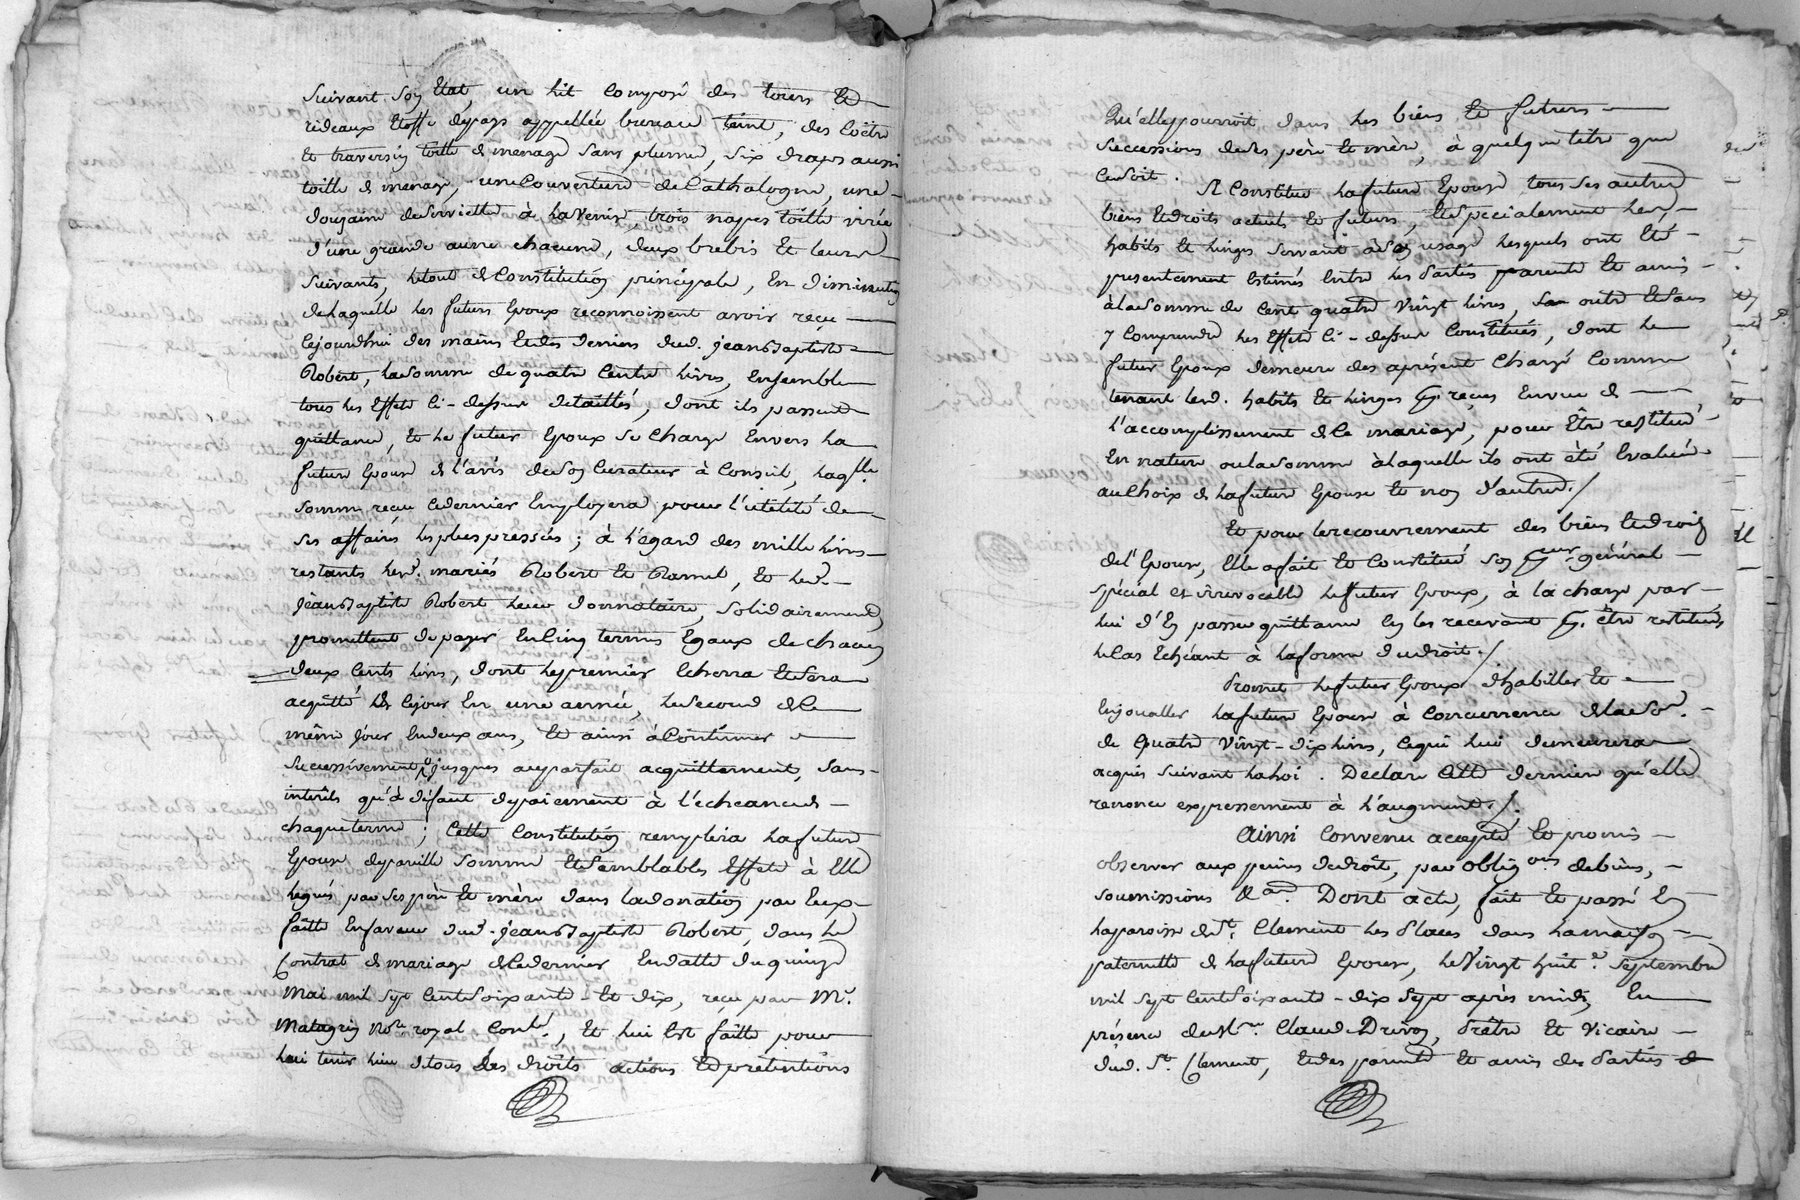 suivant son Etat, un Lit Composé des tours Et
rideaux Etoffe du pays appellée bureau teint, des Coëtre
Et traversin toille de menage sans plume, six draps aussi
toille de menage, une Couverture de Cathalogne, une
douzaine de serviette à la Venise, trois napes toille virée
d'une grande aune chacune, deux brebis Et leurs
suivants, le tout de Constitution principale, En diminution
de laquelle les futurs Epoux reconnoissent avoir reçu
cejourd'hui des mains Et des deniers dud. jean Baptiste
Robert, la somme de quatre Cents Livres, Ensemble
tous les Effets Ci-dessus detaillés, dont ils passent
quittance, Et le futur Epoux se Charge Envers la
future Epouse de l'avis de son Curateur à Conseil, laqlle
somme reçue Ce dernier Employera pour l'utilité de
ses affaires les plus pressées; à l'égard des mille Livres
restants lesd. mariés Robert Et Ramel, Et led.
jean Baptiste Robert leur donnataire, solidairement
promettent de payer En Cinq termes Egaux de chacun
deux Cents Livres, dont le premier Echerra Et sera
acquitté de Cejour En une année, le second de Ce
même jour En deux ans, Et ainsi à Continuer
successivement jusques au parfait acquittement, sans
interêts qu'à défaut de paiement à l'echeance de
chaque terme; Cette Constitution remplira la future
Epouse de pareille somme Et semblables Effets à Elle
legués par ses père Et mère dans la donation par Eux
faitte En faveur dud. jean Baptiste Robert, dans le
Contrat de mariage de Ce dernier En datte du quinze
Mai mil sept Cent soixante-Et dix, reçu par Mr.
Matagrin Nore royal, Et lui Est faitte pour
lui tenir lieu de tous Les droits actions Et prétentions
Qu'elle pourroit dans les biens Et futures
successions de ses père Et mère, à quelque titre que
Ce soit. Se Constitue la future Epouse tous ses autres
biens Et droits actuels Et futurs, Et specialement les
habits Et Linges servant à son usage Lesquels ont Eté
presentement Estimés Entre les Parties parents Et amis
à la somme de Cent quatre Vingt Livres, En outre Et sans
y Comprendre les Effets Ci-dessus Constitués, dont le
futur Epoux demeure des aprésent Chargé Comme
tenant lesd. habits Et Linges Pr. reçus En vue de
l'accomplissement de Ce mariage, pour Être restitué
En nature ou la somme à laquelle ils ont été Evalués
au Choix de la future Epouse Et non d'autres./
Et pour le recouvrement des biens Et droits
de l'Epouse, Elle a fait Et Constitué son Preur. général
spécial et irrévocable le futur Epoux, à la charge par
lui d'En passer quittance En les recevant Pr. être restitués
le Cas Echéant à la forme du droit./
Promet le futur Epoux d'habiller Et
Enjoualler la future Epouse à Concurrence de la Se.
de Quatre Vingt-dix Livres, Ce qui lui demeurera
acquis suivant la Loi. Declare Cette derniere qu'elle
renonce expressement à l'augment./.
Ainsi Convenu accepté Et promis
observer aux peines de droit, par obligons. de biens,
soumissions &a. Dont acte, fait Et passé En
la paroisse de St. Clement les Places dans la maison
paternelle de la future Epouse, le Vingt huit. septembre
mil sept Cent soixante-dix sept après midy, En
présence de Claude Drivon, Prêtre Et Vicaire
dud. St. Clement, Et des parents Et amis des Parties